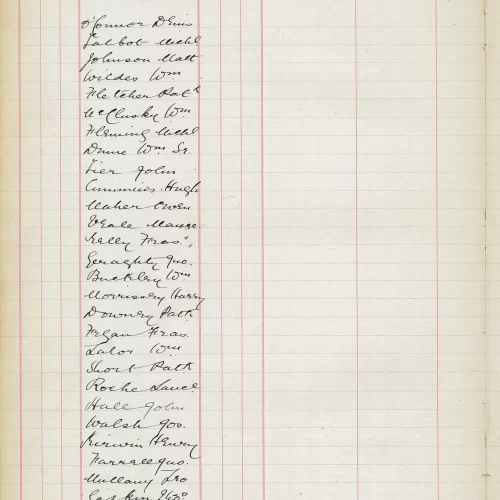 O'Connor Denis
Talbot Michl
Johnson Matt
Wildes Wm
Fletcher Patk
McClusky Wm
Fleming Michl
Dunne Wm Sr.
Tier John
Cummins Hugh
Maher Owen
Veale Maurce
Kelly Fras.
Geraghty Geo.
Buckley Wm
Morrissey Harry
Downey Patk
Fegan Fras.
Lalor Wm
Short Patk
Roche Lauce
Hall John
Walsh Jos.
Kirwin Henry
Farrell Geo.
Mullany Leo
Gaskin Thos